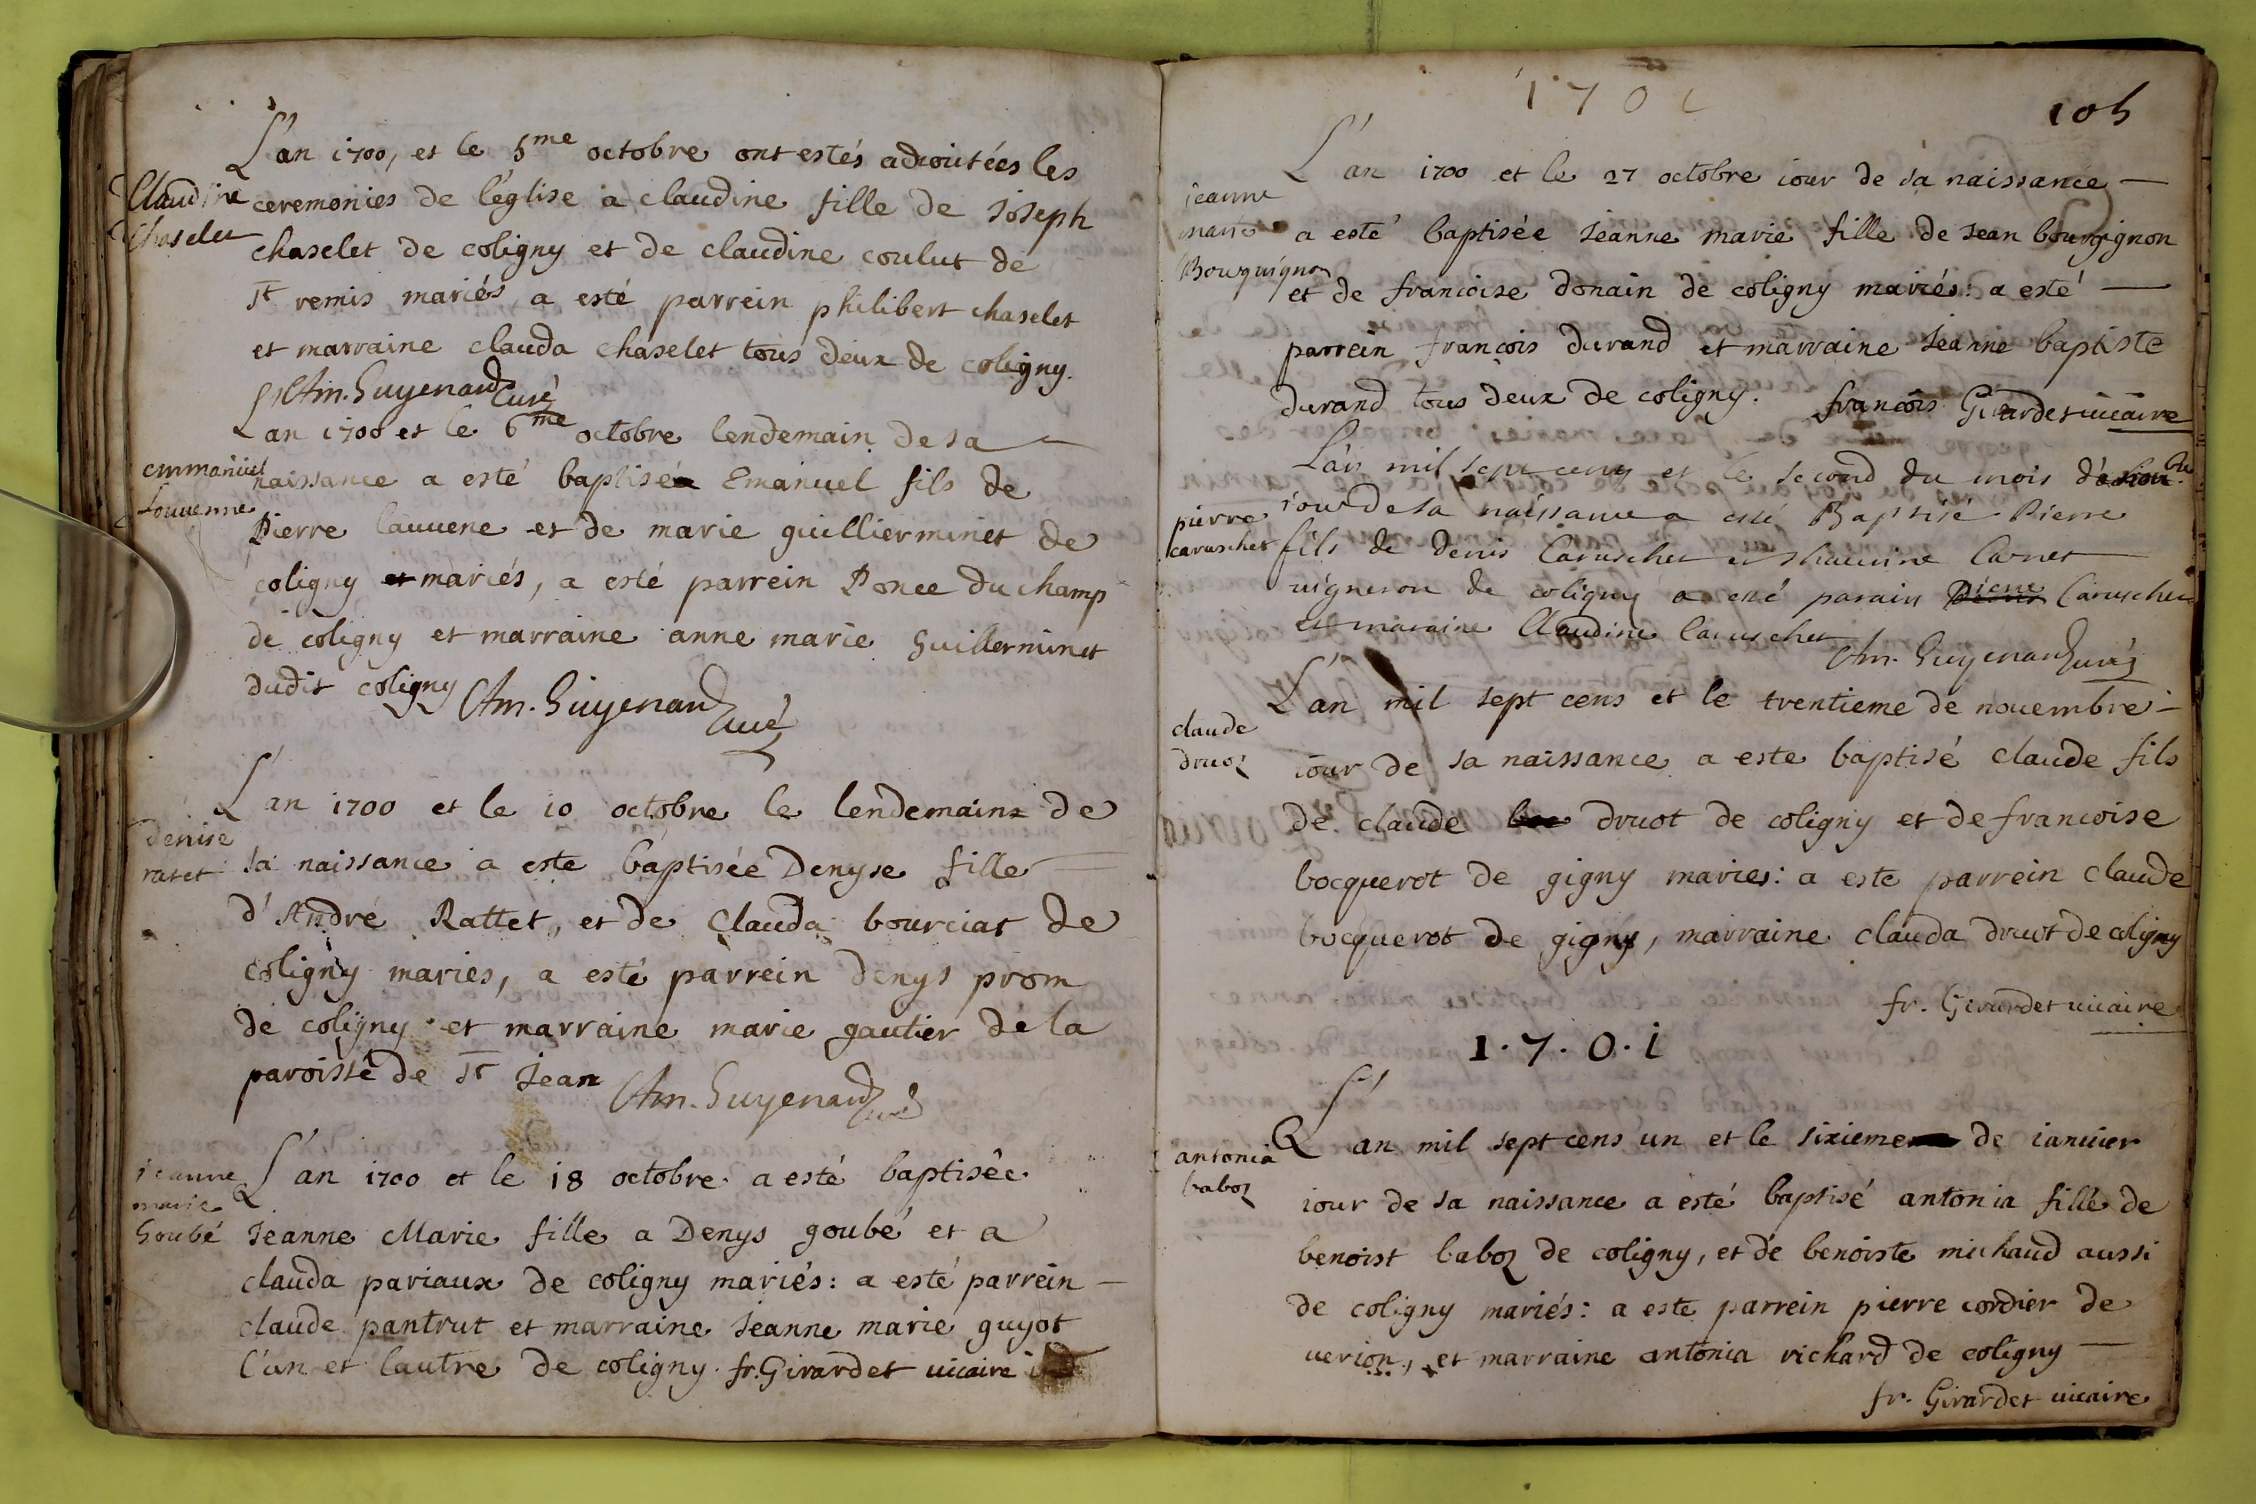 L'an 1700, et le 5me octobre ont estés adioutées les
Claudine
Chaselet
ceremonies de l'église a claudine fille de Joseph
chaselet de coligny et de claudine coulut de
St remis mariés, a esté parrein philibert chaselet
et marraine clauda chaselet tous deux de coligny.
Am. Guyenard curé
L'an 1700 et le 6me octobre lendemain de sa
emmanüel
Louuenne
naissance a esté baptisé Emanuel fils de
Pierre lauuene et de marie guillierminet de
coligny mariés, a esté parrein Ponce du champ
de coligny et marraine anne marie Guillerminet
dudit coligny Am. Guyenard curé
L'an 1700 et le 10 octobre le lendemain de
denise
ratet
sa naissance a este baptisée Denyse fille
d'André Rattet, et de Clauda bourciat de
coligny maries, a esté parrein Denys prom
de coligny et marraine marie gautier de la
paroisse de St Jean Am. Guyenard curé
jeanne
marie
Goubé
L'an 1700 et le 18 octobre a esté baptisée
Jeanne Marie fille a Denys goubé et a
clauda pariaux de coligny mariés: a esté parrein
claude pantrut et marraine Jeanne marie guyot
l'un et lautre de coligny. fr. Girardet uicaire
1701
105
L'an 1700 et le 27 octobre iour de sa naissance
jeanne
marie
Bourguignon
a esté baptisée Jeanne marie fille de Jean bourgignon
et de francoise donain de coligny mariés: a esté
parrein françois durand et marraine Jeanne baptiste
durand tous deux de coligny. françois Girardet uicaire
L'an mil sept cens et le second du mois
pierre
caruschet
iour de sa naissance a esté Baptisé Pierre
fils de denis Caruschet et Carnet
uigneron de coligny a esté parain Pierre Caruschet
et maraine Claudine Caruschet
Am. Guyenard curé
L'an mil sept cens et le trentieme de nouembre
claude
druoz
iour de sa naissance a este baptisé claude fils
de claude druot de coligny et de francoise
bocquerot de gigny maries: a este parrein claude
bocquerot de gigny, marraine clauda druot de coligny
fr. Girardet uicaire
1.7.0.1
L'an mil sept cens un et le sixieme de ianuier
antonia
baboz
iour de sa naissance a esté baptisé antonia fille de
benoist baboz de coligny, et de benoiste michaud aussi
de coligny mariés: a este parrein pierre cordier de
uerion, et marraine antonia richard de coligny
fr. Girardet uicaire